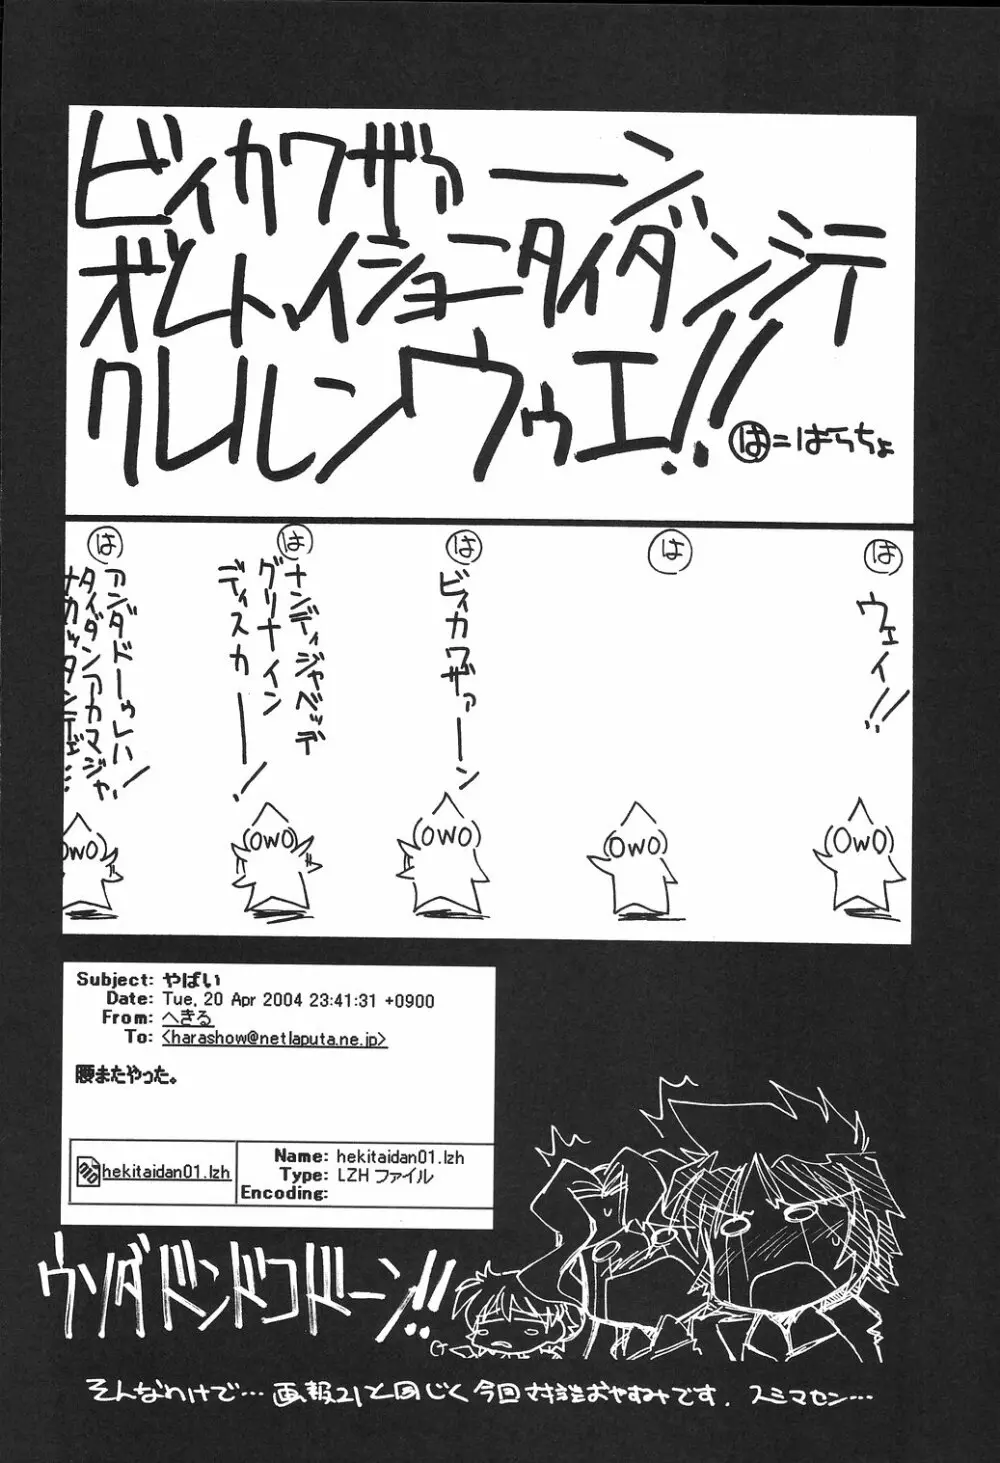 ビィカワザァーーン
オレトイッショニタイダンシテ
クレルンウゥエ!!
は=ばらちょ
は
ウェイ!!
は
は
ビィカワザァーーン
は
ナンディジャベッデ
グリナイン
ディスカーー!
は
アンダドーゥレハ!
タイダンアカマジャ、
ナカッタンデェ…
OwO
OwO
OwO
OwO
OwO
Subject: やばい
Date: Tue, 20 Apr 2004 23:41:31 +0900
From: へきる
To: <harashow@netlaputa.ne.jp>
腰またやった。
hekitaidan01.lzh
Name: hekitaidan01.lzh
Type: LZH ファイル
Encoding:
ウソダドンドコドーン!!
そんなわけで…画報21と同じく今回対談おやすみです. スミマセン…